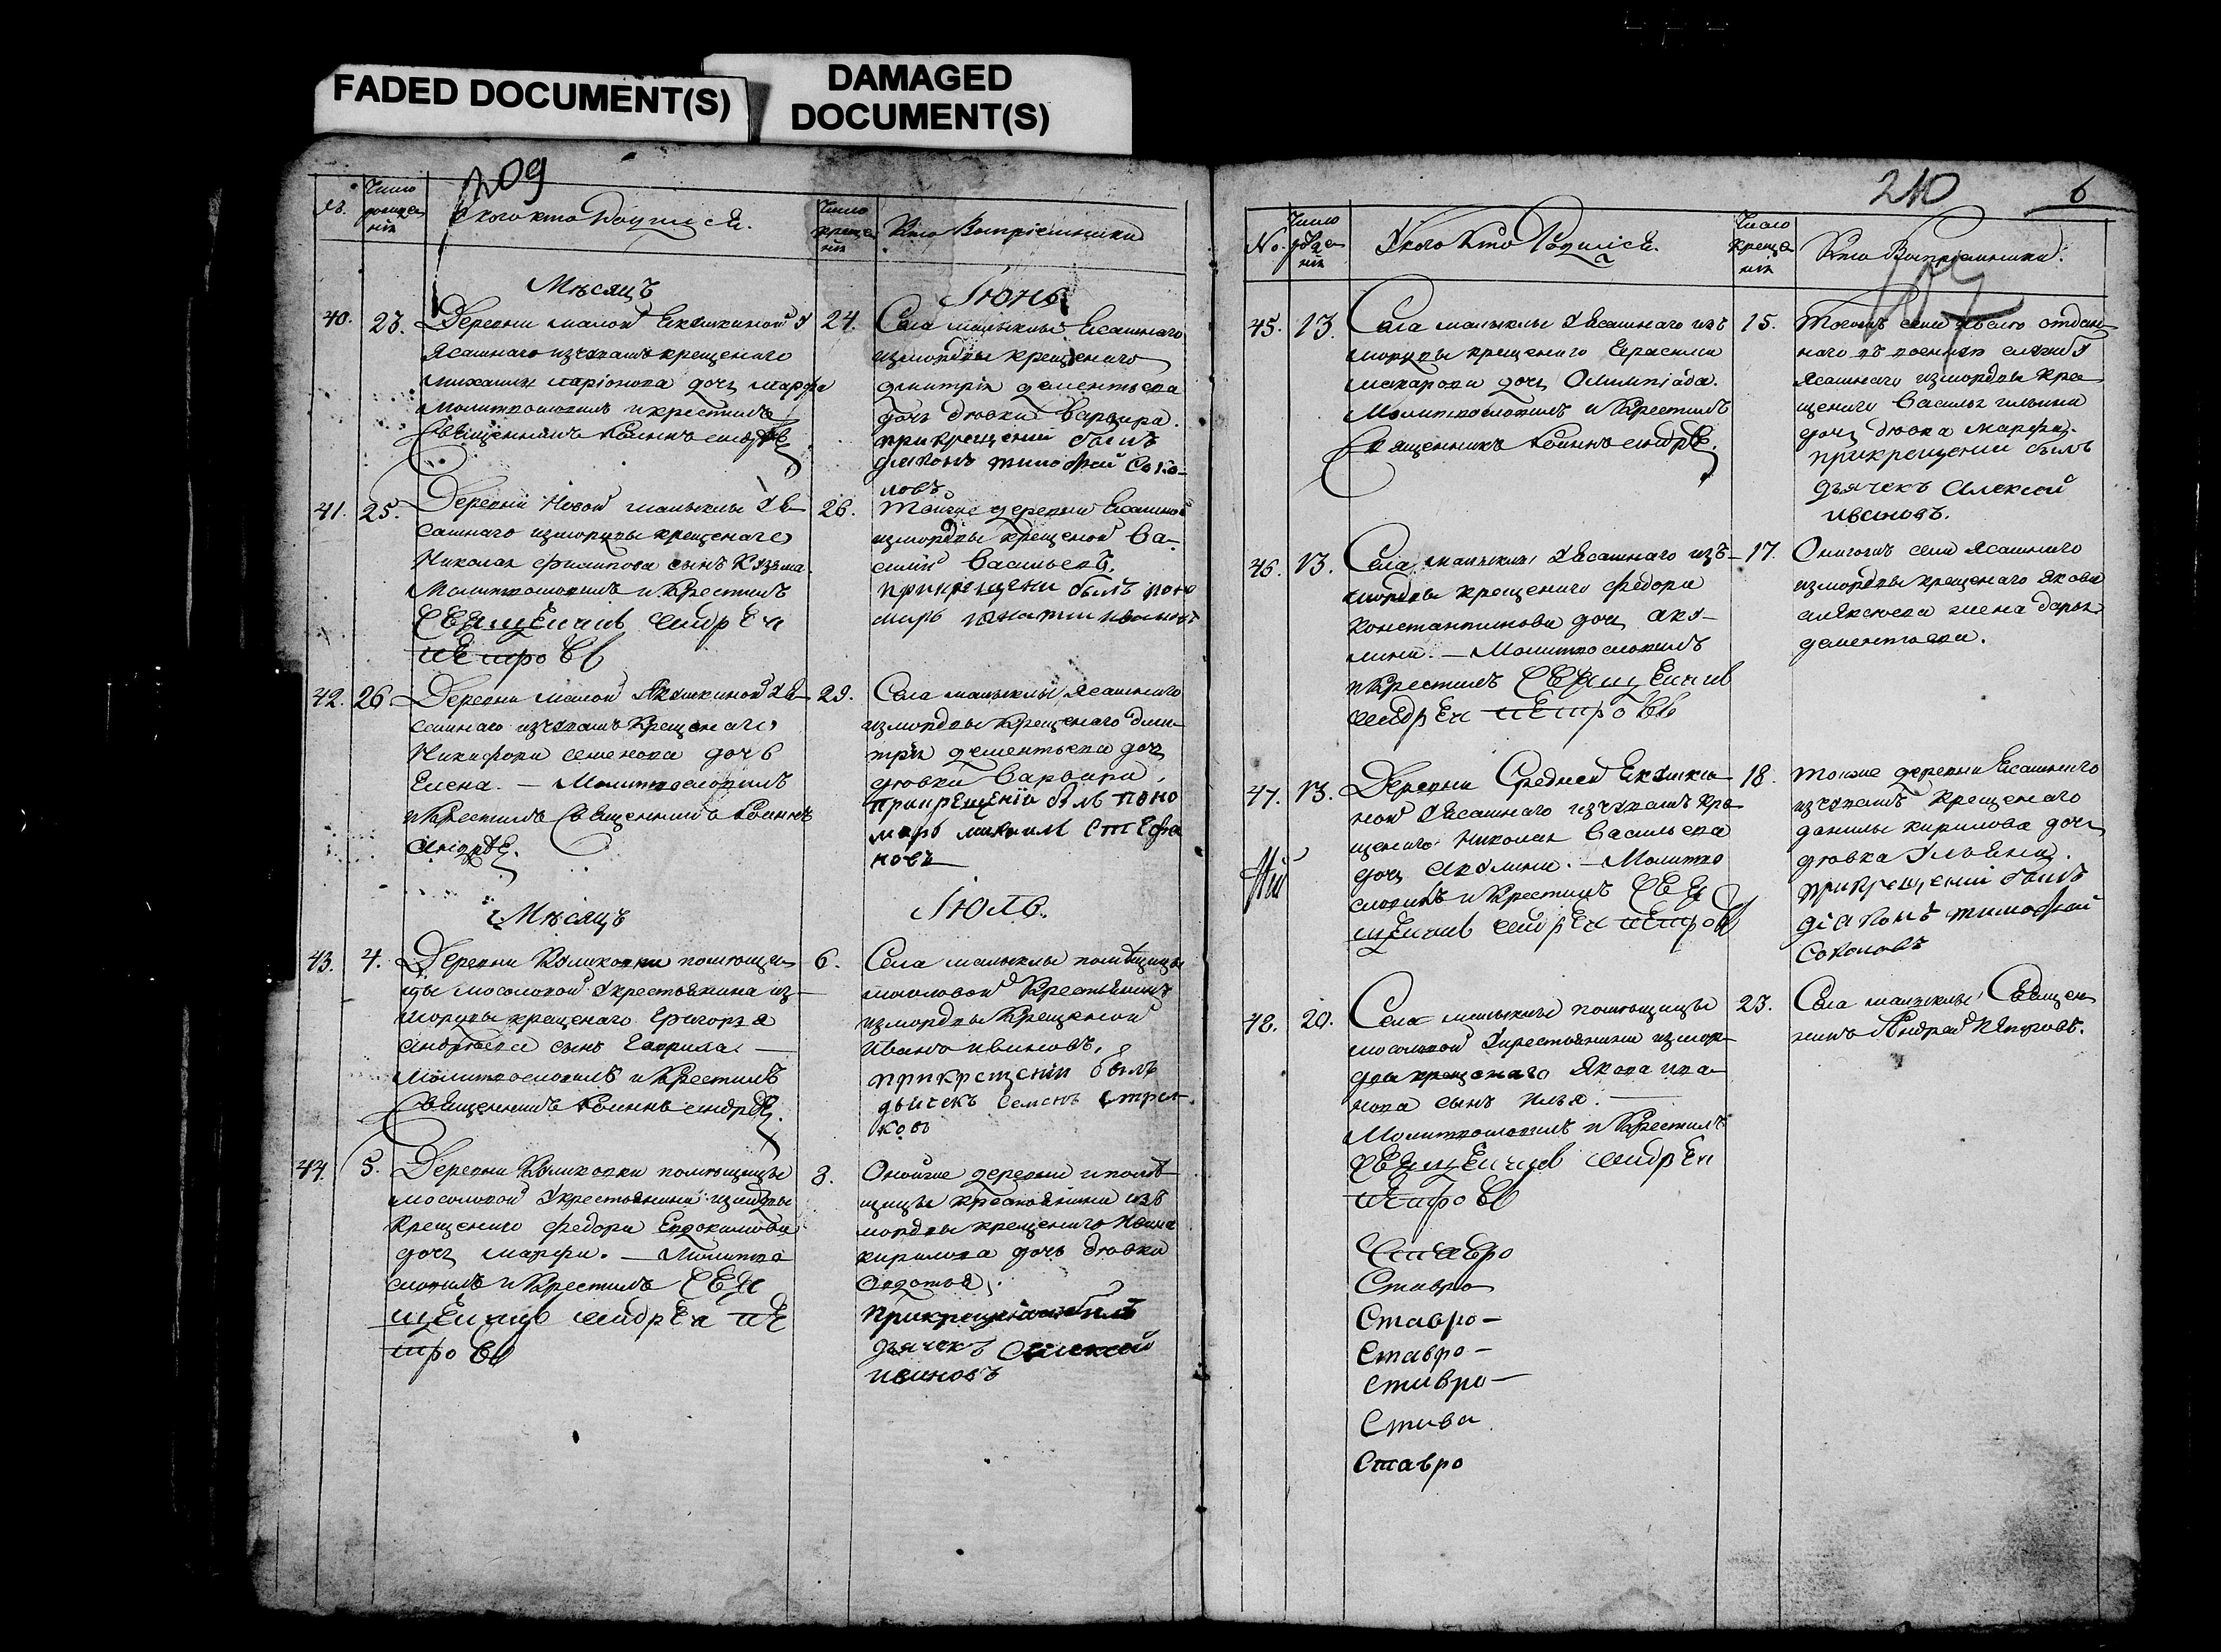 FADED DOCUMENT(S)
DAMAGED
DOCUMENT(S)
209
№.
Число
рожде
нія
У кого кто Родился.
Число
креще
нія
Кто Воспріемники
Мѣсяцъ
Іюнь
40. 23.
Деревни малой Якушкиной у
Ясашнаго изчувашъ крещенаго
михаила ларіонова дочь марфа
Молитвословилъ и крестилъ
Священникъ Іоаннъ андрѣе
24.
Села малыклы Ясашнаго
измордвы крещенаго
димитрія дементьева
дочь дѣвка варвара.
прикрещеніи былъ
діаконъ тимофей Соко-
ловъ
41. 25.
Деревни Новой малыклы у Я-
сашнаго измордвы крещенаго
Николая филипова сынъ Кузьма.
Молитвословилъ и Крестилъ
Священникъ андрей
петровъ
26.
Тойже деревни Ясашной
измордвы крещеной Ва-
силій Васильевъ.
прикрещени былъ поно
марь игнатии ивановъ
42. 26.
Деревни малой Якушкиной у Я-
сашнаго изчувашъ Крещенаго
Никифора семенова дочь
Елена. — Молитвословилъ
и Крестилъ Священникъ Іоаннъ
андрѣе.
29.
Села малыклы Ясашнаго
измордвы Крещенаго дми-
трія дементьева дочь
дѣвка варвара.
прикрещеніи былъ поно
марь михаилъ стефа
новъ
Мѣсяцъ
Іюль.
43. 4.
Деревни Куликовки помѣщи-
цы мосоловой у крестьянина из-
мордвы крещенаго Григорья
андрѣева сынъ Гаврила. —
Молитвословилъ и Крестилъ
Священникъ Іоаннъ андрѣе.
6.
Села малыклы помѣщицы
мосоловой Крестьянинъ
измордвы Крещеной
Иванъ ивановъ.
прикрещеніи былъ
дьячекъ Семенъ Стрел-
ковъ
44. 5.
Деревни Куликовки помѣщицы
мосоловой у крестьянина измордвы
Крещенаго федора Евдокимова
дочь марфа. — Молитво
словилъ и Крестилъ Свя
щенникъ андрей пе
тровъ
8.
Оной же деревни и помѣ-
щицы крестьянина изъ
мордвы крещенаго Ивана
кирилова дочь дѣвка
Авдотья.
прикрещеніи былъ
дьячекъ Алексей
ивановъ
210
6
107
No.
Число
рожде
нія
У кого Кто Родился.
Число
Креще
нія
Кто Воспріемники.
45. 13.
Села малыклы у Ясашнаго изъ
мордвы крещенаго Герасима
макарова дочь Олимпіада.
Молитвословилъ и Крестилъ
Священникъ Іоаннъ андрѣе.
15.
Тогожъ села отдан-
наго въ военную службу
Ясашнаго измордвы кре
щенаго василья ильина
дочь дѣвка марфа.
прикрещении былъ
дьячекъ Алексей
ивановъ.
46. 13.
Села малыклы у Ясашнаго изъ-
мордвы крещенаго федора
константинова дочь аку-
лина. — Молитвословилъ
и Крестилъ Священникъ
андрей петровъ
17.
Оногожъ села Ясашнаго
измордвы крещенаго якова
алексеева жена дарья
дементьева.
47. 13.
Деревни Средней Якушки-
ной у Ясашнаго изчувашъ кре-
щенаго Николая Васильева
дочь акулина. — Молитво
словилъ и Крестилъ Свя
щенникъ андрей петровъ
18.
Тойже деревни Ясашнаго
изчувашъ Крещенаго
данилы кирилова дочь
дѣвка Ульяна.
прикрещеніи былъ
діаконъ тимофей
Соколовъ
48. 20.
Села малыклы помѣщицы
мосоловой у крестьянина измор-
двы крещенаго Якова ива-
нова сынъ илья. —
Молитвословилъ и Крестилъ
Священникъ андрей
петровъ
23.
Села малыклы Священ
никъ Андрей Петровъ.
Ставро
Ставро
Ставро-
Ставро-
Ставро-
Става
Ставро